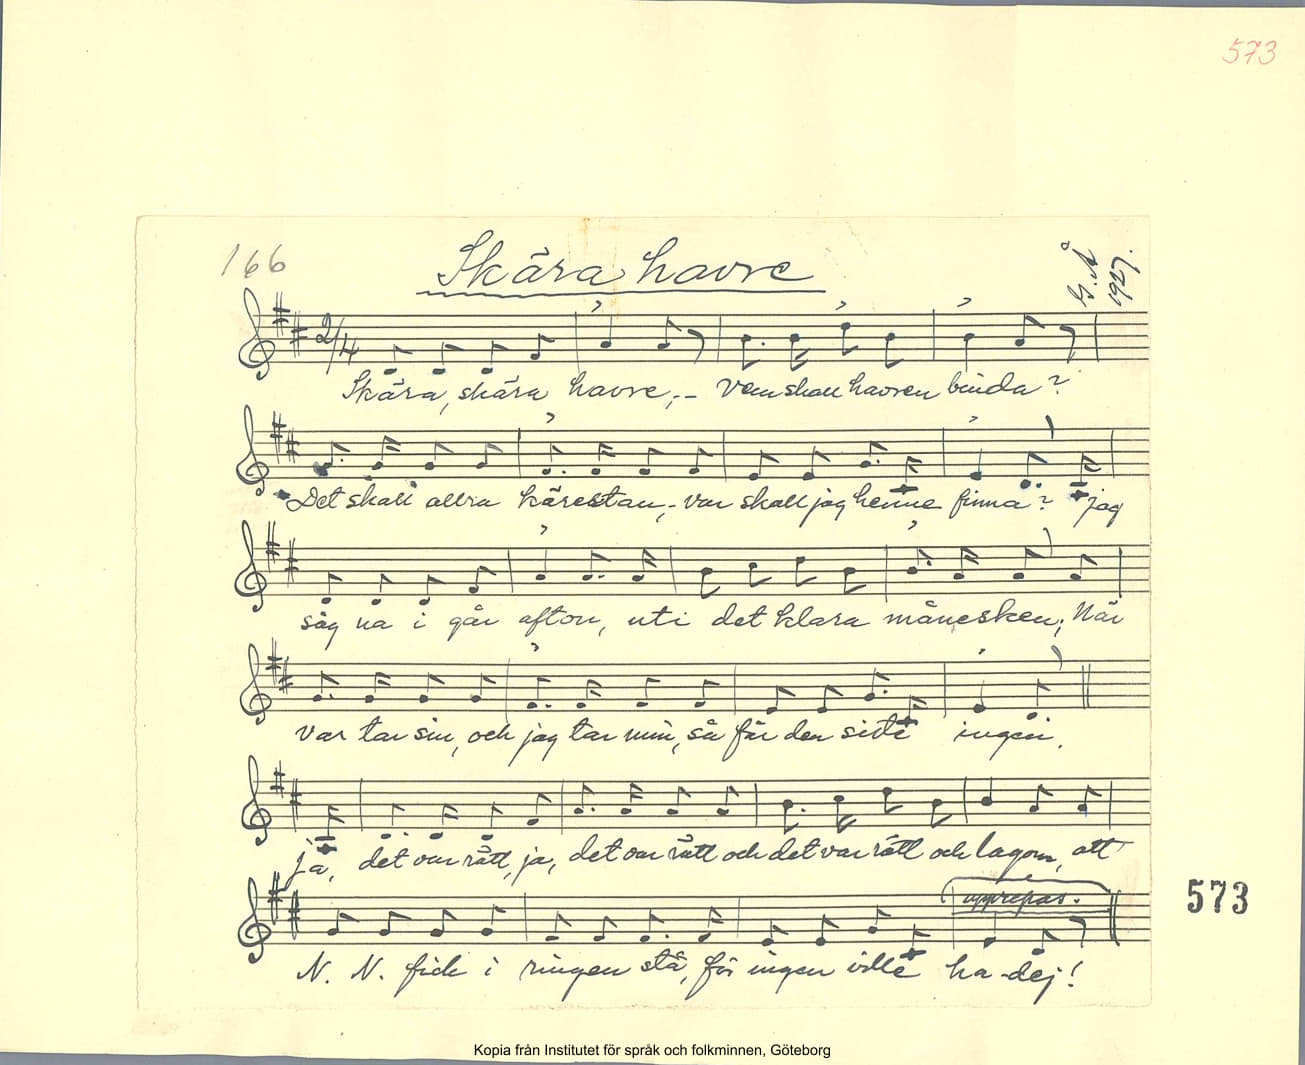 573
166
Skära havre
G.Å
1927.
2/4
Skära, skära havre, - Vem skall havren binda?
Det skall allra kärestan, - var skall jag henne finna? jag
såg na i går afton, uti det klara månesken; När
var tar sin, och jag tar min, så får den siste ingen.
ja, det var rätt, ja, det var rätt och det var rätt och lagom, att
upprepas.
573
N. N. fick i ringen stå, för ingen ville ha dej!
Kopia från Institutet för språk och folkminnen, Göteborg